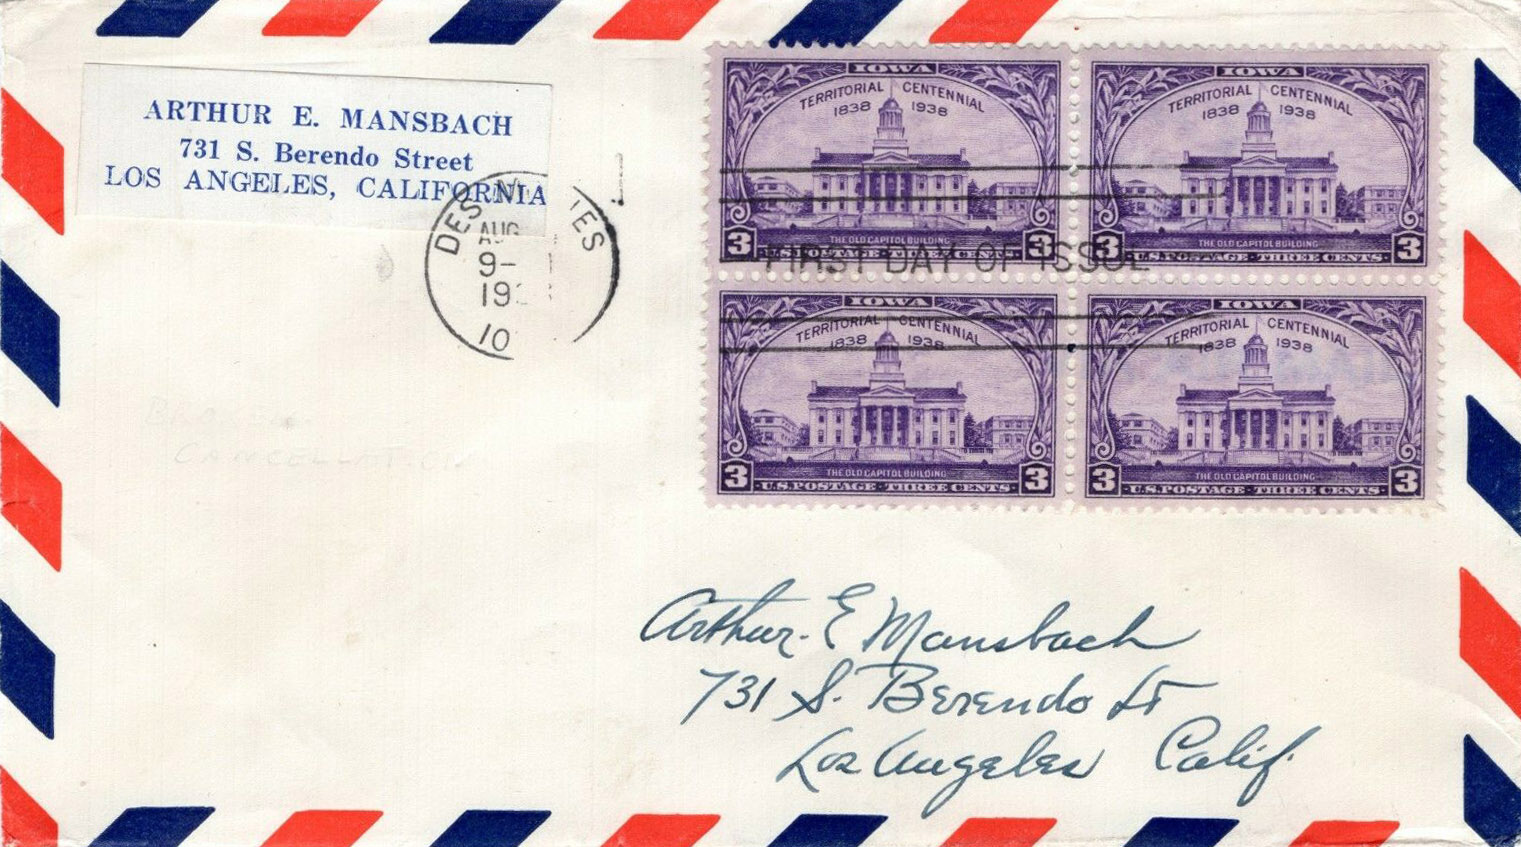 ARTHUR E. MANSBACH
731 S. Berendo Street
LOS ANGELES, CALIFORNIA
DES
NES
AUG
9-
19
10
IOWA
TERRITORIAL CENTENNIAL
1838 1938
THE OLD CAPITOL BUILDING
3 U.S. POSTAGE · THREE CENTS 3
IOWA
TERRITORIAL CENTENNIAL
1838 1938
THE OLD CAPITOL BUILDING
3 U.S. POSTAGE · THREE CENTS 3
FIRST DAY OF ISSUE
IOWA
TERRITORIAL CENTENNIAL
1838 1938
THE OLD CAPITOL BUILDING
3 U.S. POSTAGE · THREE CENTS 3
IOWA
TERRITORIAL CENTENNIAL
1838 1938
THE OLD CAPITOL BUILDING
3 U.S. POSTAGE · THREE CENTS 3
CANCELLATION
Arthur. E Mansbach
731 S. Berendo St
Los Angeles Calif.